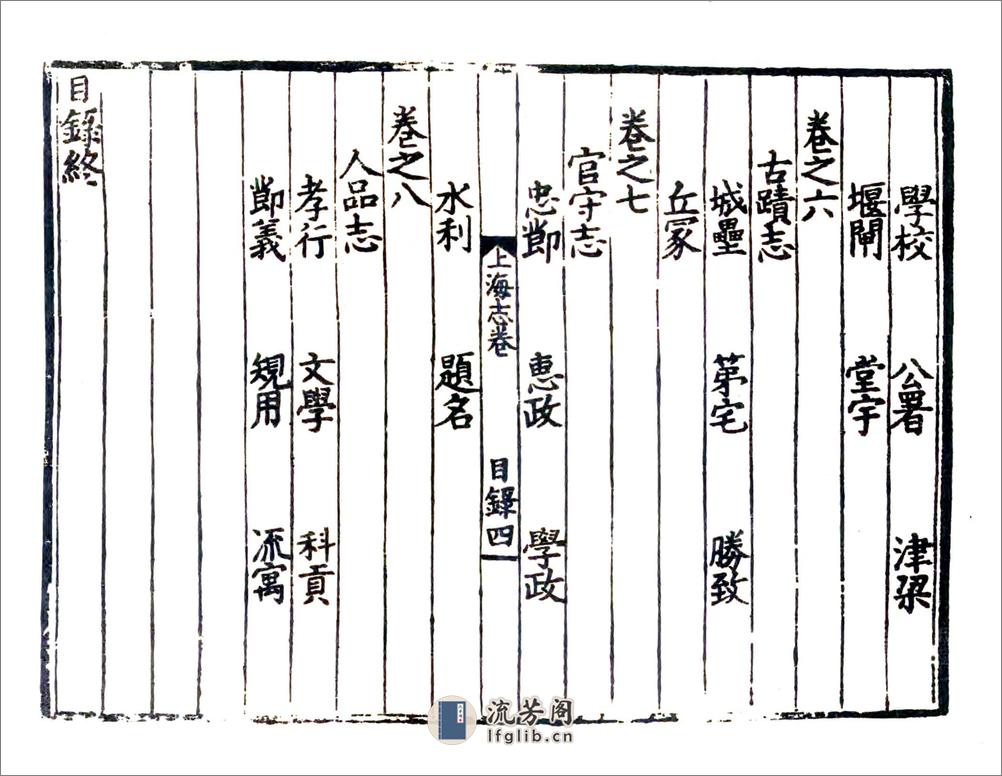 學校 公署 津梁
堰閘 堂宇
卷之六
古蹟志
城壘 第宅 勝致
丘冢
卷之七
官守志
忠節 惠政 學政
上海志卷 目錄四
水利 題名
卷之八
人品志
孝行 文學 科貢
節義 規用 流寓
目錄終
流芳阁
lfglib.cn